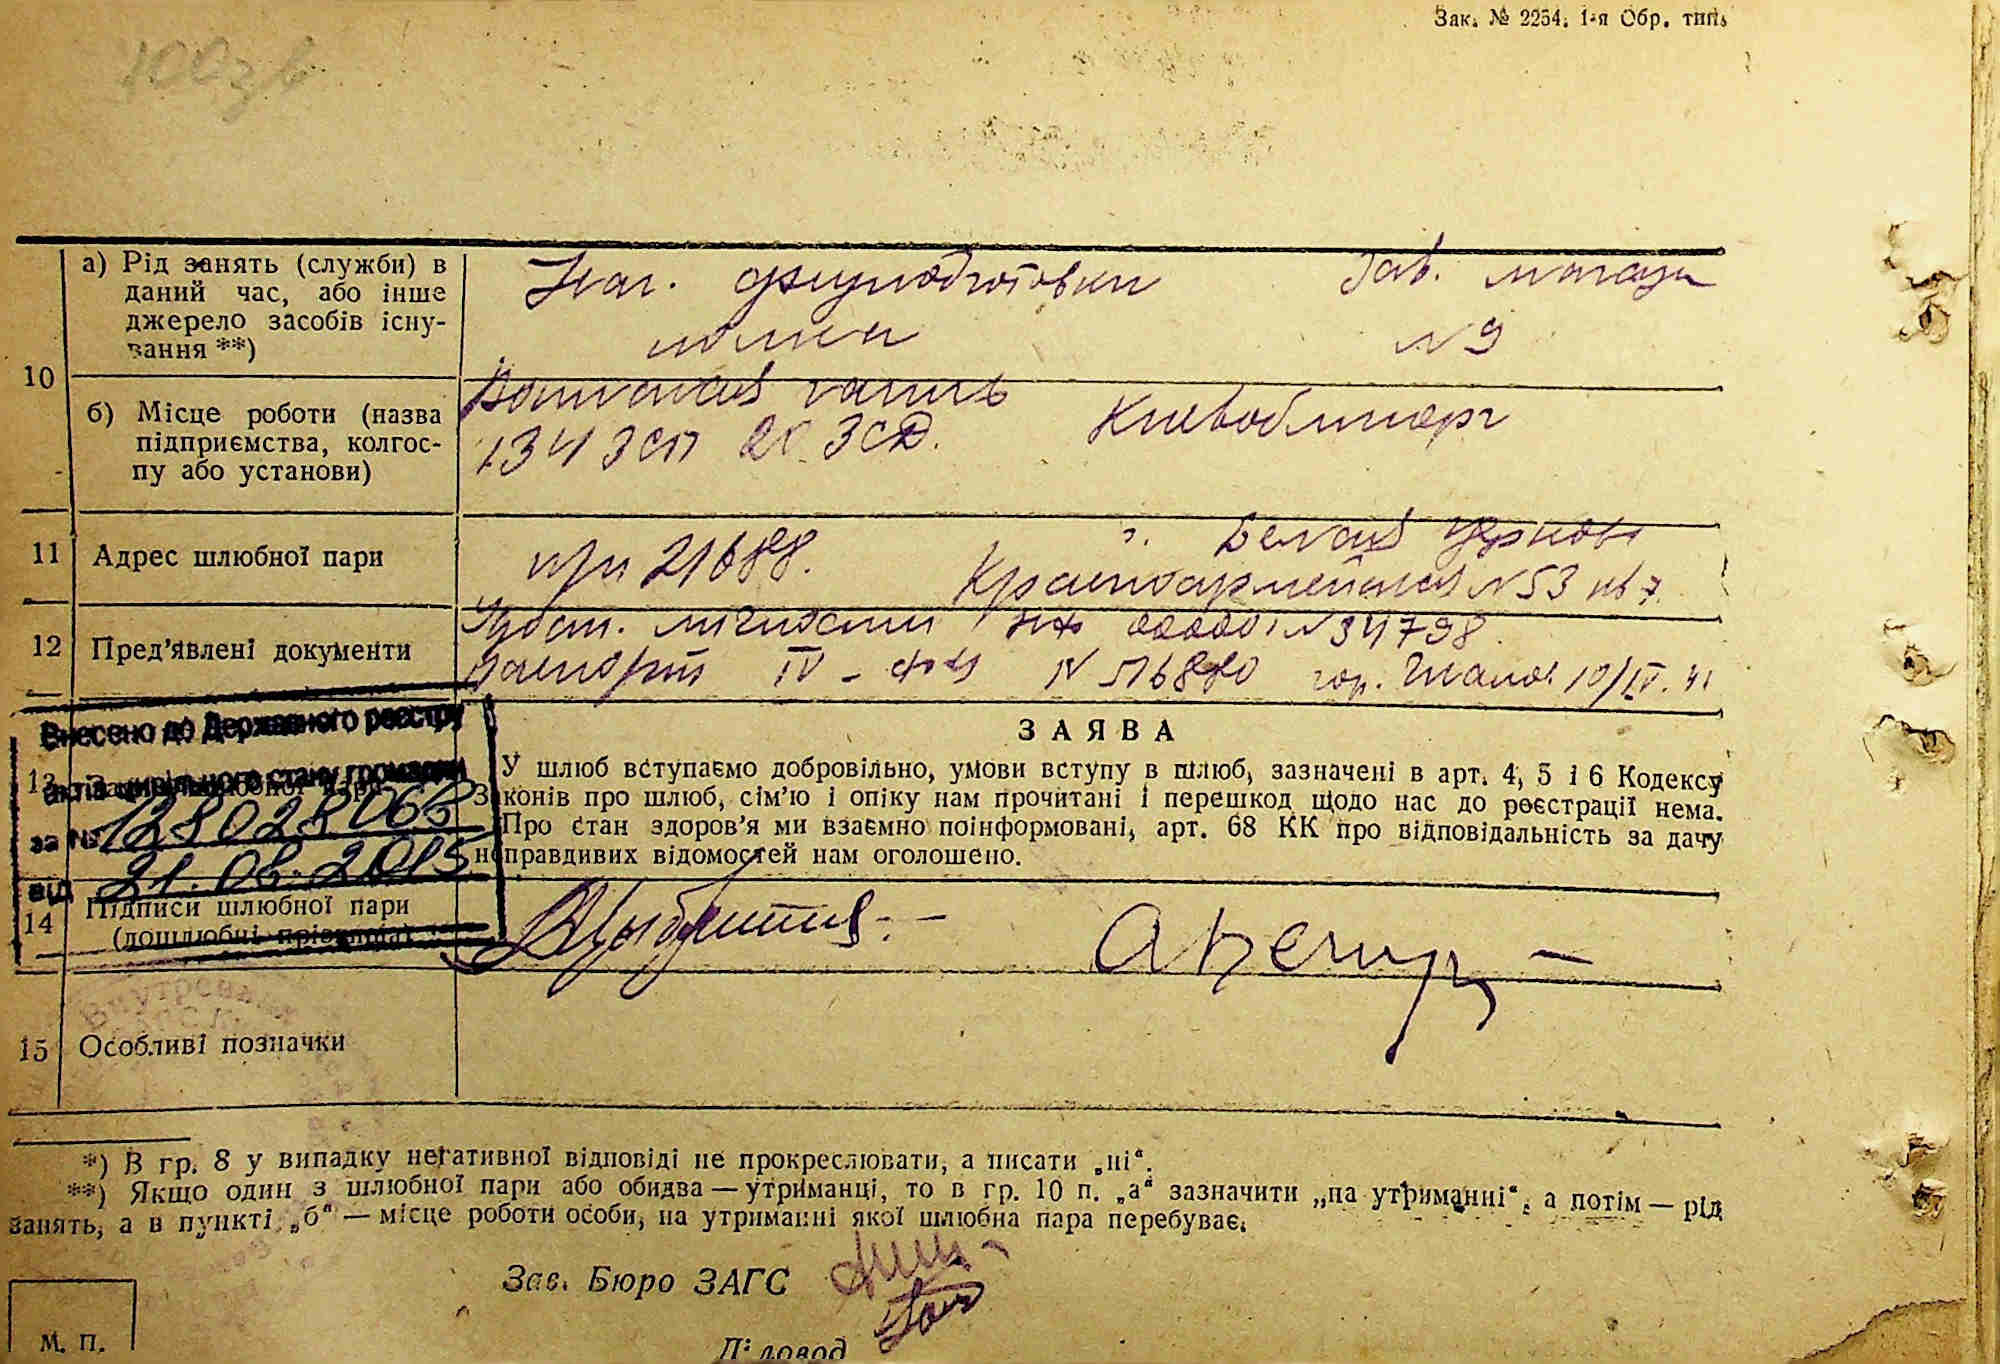 Зак. № 2254. 1-я Обр. тип.
100 зв
10
а) Рід занять (служби) в
даний час, або інше
джерело засобів існу-
вання **)
Нач. физподготовки
полка
Зав. магази
№ 9
б) Місце роботи (назва
підприємства, колгос-
пу або установи)
Воинская часть
134 ЗСП 2 ЗСД.
Киевоблторг
11 Адрес шлюбної пари
п/п 21688.
г. Белая Церковь
Красноармейская № 53 кв 7.
12 Пред'явлені документи
Удост. личности № 34798
Паспорт IV - № 516880 гор. 10/IV. 41
Внесено до Державного реєстру
актів цивільного стану громадян
за № 12802806
від 21.08.2015
13
ЗАЯВА
У шлюб вступаємо добровільно, умови вступу в шлюб, зазначені в арт. 4, 5 і 6 Кодексу
Законів про шлюб, сім'ю і опіку нам прочитані і перешкод щодо нас до реєстрації нема.
Про стан здоров'я ми взаємно поінформовані, арт. 68 КК про відповідальність за дачу
неправдивих відомостей нам оголошено.
14 Підписи шлюбної пари
(дошлюбні прізвища)
15 Особливі позначки
*) В гр. 8 у випадку негативної відповіді не прокреслювати, а писати „ні“.
**) Якщо один з шлюбної пари або обидва — утриманці, то в гр. 10 п. „а“ зазначити „на утриманні“, а потім — рід
занять, а в пункті „б“ — місце роботи особи, на утриманні якої шлюбна пара перебуває.
Зав. Бюро ЗАГС
М. П.
Діловод